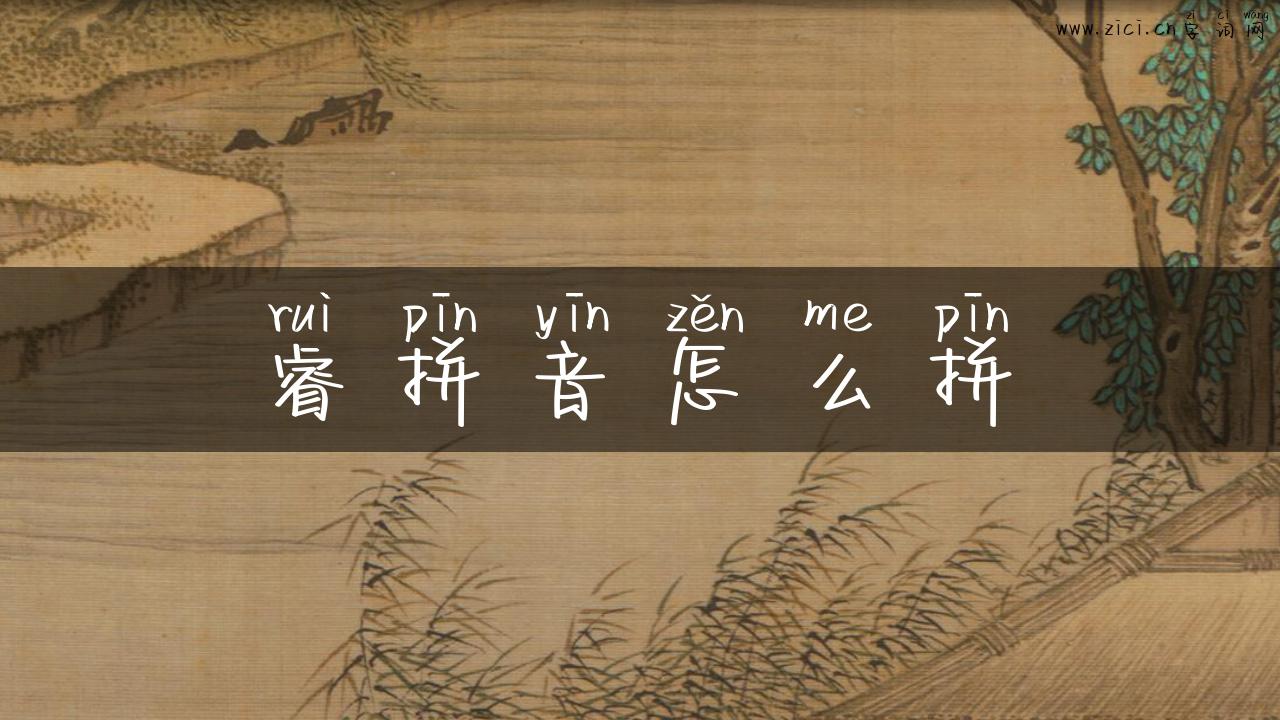 zì cí wǎng
www.zici.cn字词网
ruì pīn yīn zěn me pīn
睿拼音怎么拼